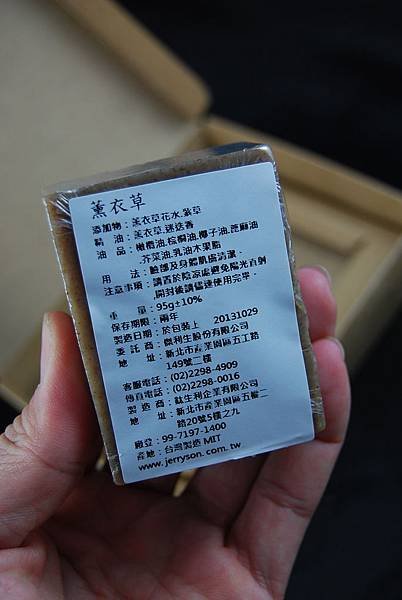 薰衣草
添加物：薰衣草花水.紫草
精　油：薰衣草.迷迭香
油　品：橄欖油,棕櫚油,椰子油,蓖麻油
,芥菜油,乳油木果脂
用　法：臉部及身體肌膚清潔.
注意事項：請置於陰涼處避免陽光直射
,開封後請儘速使用完畢.
重　量：95g±10%
保存期限：兩年
製造日期：於包裝上 20131029
委託商：傑利生股份有限公司
地　址：新北市產業園區五工路
149號二樓
客服電話：(02)2298-4909
傳真電話：(02)2298-0016
製造商：鈦生利企業有限公司
地　址：新北市產業園區五權二
路20號5樓之九
廠登：99-7197-1400
產地：台灣製造 MIT
www.jerryson.com.tw